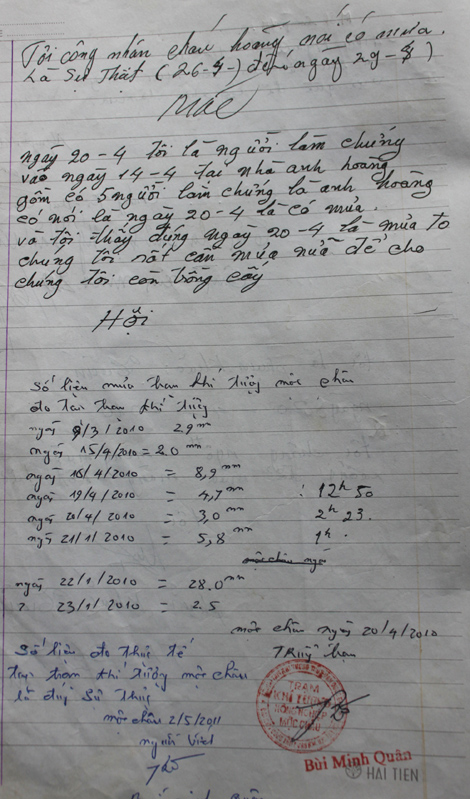 Tôi công nhân cháu hoàng nói có mưa.
Là Sự Thật (26-4-) đến ngày 29-4)
ngày 20-4 tôi là người làm chứng
vào ngày 14-4 tại nhà anh hoàng
gồm có 5 người làm chứng là anh hoàng
có nói là ngày 20-4 là có mưa.
và tôi thấy đúng ngày 20-4 là mưa to
chúng tôi rất cần mưa nữa để cho
chúng tôi còn trồng cấy
Hợi
Số liệu mưa trạm khí tượng mộc châu
đo tại trạm khí tượng
ngày /3/2010 2.9 mm
ngày 15/4/2010 = 2.0 mm
ngày 16/4/2010 = 8,9 mm
ngày 19/4/2010 = 4,7 mm : 12h 50
ngày 20/4/2010 = 3,0 mm 2h 23.
ngày 21/1/2010 = 5,8 mm 1h.
mộc châu ngày
ngày 22/1/2010 = 28.0 mm
? 23/1/2010 = 2.5
mộc châu ngày 20/4/2010
Số liệu đo thực tế
Trưởng trạm
tại trạm khí tượng mộc châu
là đúng Sự Thực
TRẠM
KHÍ TƯỢNG
NÔNG NGHIỆP
MỘC CHÂU
mộc châu 2/5/2011
người viết
Bùi Minh Quân
HẢI TIẾN